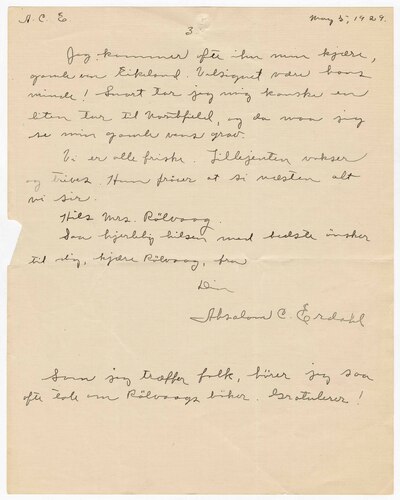 A. C. E
May 5, 1929.
3.
Jeg kommer ofte ihu min kjære,
gamle ven Eikeland. Velsignet være hans
minde! Snart tar jeg mig kanske en
liten tur til Northfield, og da maa jeg
se min gamle vens grav.
Vi er alle friske. Lillejenten vokser
og trives. Hun prøver at si næsten alt
vi sier.
Hils Mrs. Rölvaag.
Saa hjertelig hilsen med bedste ønsker
til dig, kjære Rölvaag, fra
Din
Absalom C. Erdahl
Som jeg træffer folk, hører jeg saa
ofte tale om Rölvaags bøker. Gratulerer!